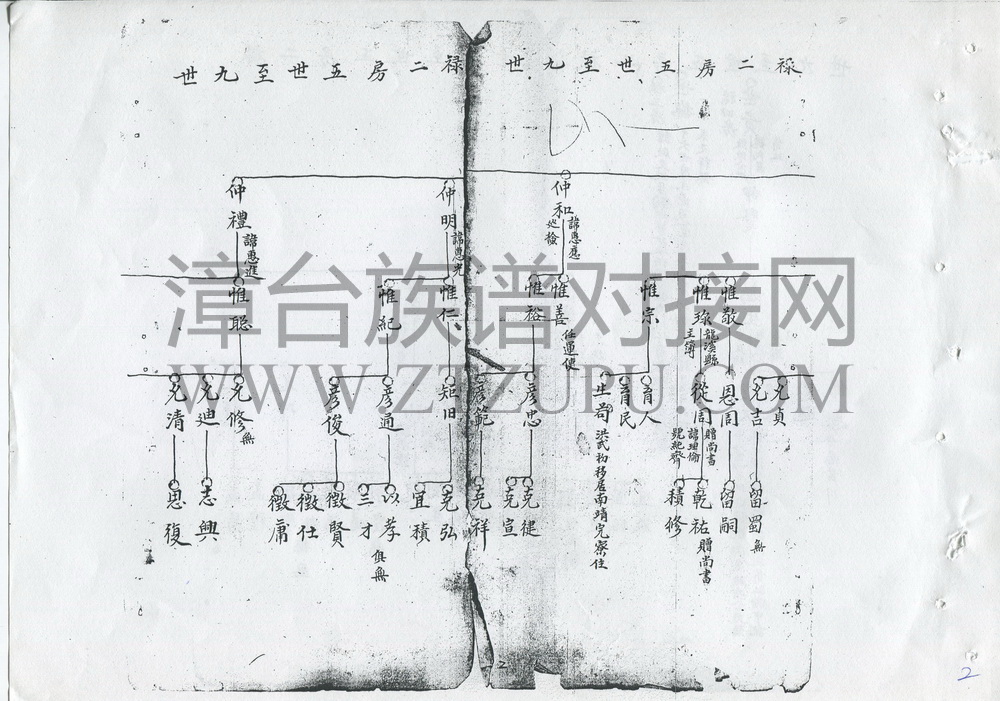 禄二房五世至九世
禄二房五世至九世
仲和
諱惠應
廵檢
仲明
諱惠光
仲禮
諱惠進
惟敬
惟琭
龍溪縣
主簿
惟宗
惟善
任運使
惟裕
惟仁
惟紀
惟聡
允貞
允吉
恩周
從周
贈尚書
號純齋
育人
育民
生苟
洪武初移居南靖完寮住
彦忠
彦範
矩旧
彦通
彦俊
允修
無
允迪
允清
留蜀
無
留嗣
乾祐
贈尚書
積修
克健
克宣
克祥
克弘
宜積
以孝
俱無
三才
徵賢
徵仕
徵庸
志興
思復
2
2
漳台族谱对接网
WWW.ZTZUPU.COM